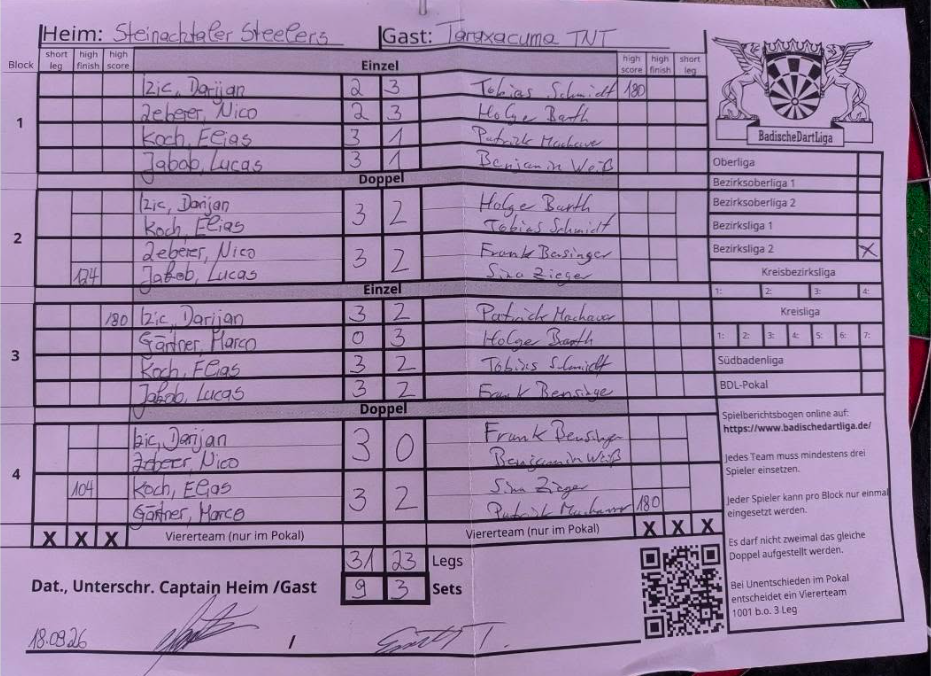 Heim: Steinachtaler Steelers Gast: Taraxacuma TNT
Block short leg high finish high score Einzel high score high finish short leg
1
Izic, Darijan 2 3 Tobias Schmidt 180
Zeberer, Nico 2 3 Holge Barth
Koch, Elias 3 1 Patrick Machauer
Jakob, Lucas 3 1 Benjamin Weiß
Doppel
2
Izic, Darijan 3 2 Holge Barth
Koch, Elias Tobias Schmidt
Zeberer, Nico 3 2 Frank Bensinger
124 Jakob, Lucas Sina Zieger
Einzel
3
180 Izic, Darijan 3 2 Patrick Machauer
Gärtner, Marco 0 3 Holge Barth
Koch, Elias 3 2 Tobias Schmidt
Jakob, Lucas 3 2 Frank Bensinger
Doppel
4
Izic, Darijan 3 0 Frank Bensinger
Zeberer, Nico Benjamin Weiß
104 Koch, Elias 3 2 Sina Zieger
Gärtner, Marco Patrick Machauer 180
X X X Viererteam (nur im Pokal) Viererteam (nur im Pokal) X X X
31 23 Legs
Dat., Unterschr. Captain Heim /Gast 9 3 Sets
18.09.26 /
BadischeDartLiga
Oberliga
Bezirksoberliga 1
Bezirksoberliga 2
Bezirksliga 1
Bezirksliga 2 X
Kreisbezirksliga
1: 2: 3: 4:
Kreisliga
1: 2: 3: 4: 5: 6: 7:
Südbadenliga
BDL-Pokal
Spielberichtsbogen online auf:
https://www.badischedartliga.de/
Jedes Team muss mindestens drei
Spieler einsetzen.
Jeder Spieler kann pro Block nur einmal
eingesetzt werden.
Es darf nicht zweimal das gleiche
Doppel aufgestellt werden.
Bei Unentschieden im Pokal
entscheidet ein Viererteam
1001 b.o. 3 Leg